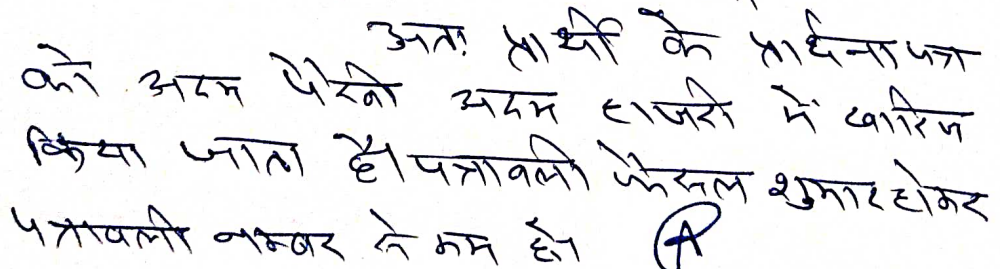 अतः प्रार्थी के प्रार्थना पत्र
को अदम पैरवी अदम हाजरी में खारिज
किया जाता है। पत्रावली फैसल शुमार होकर
पत्रावली नम्बर से कम हो।